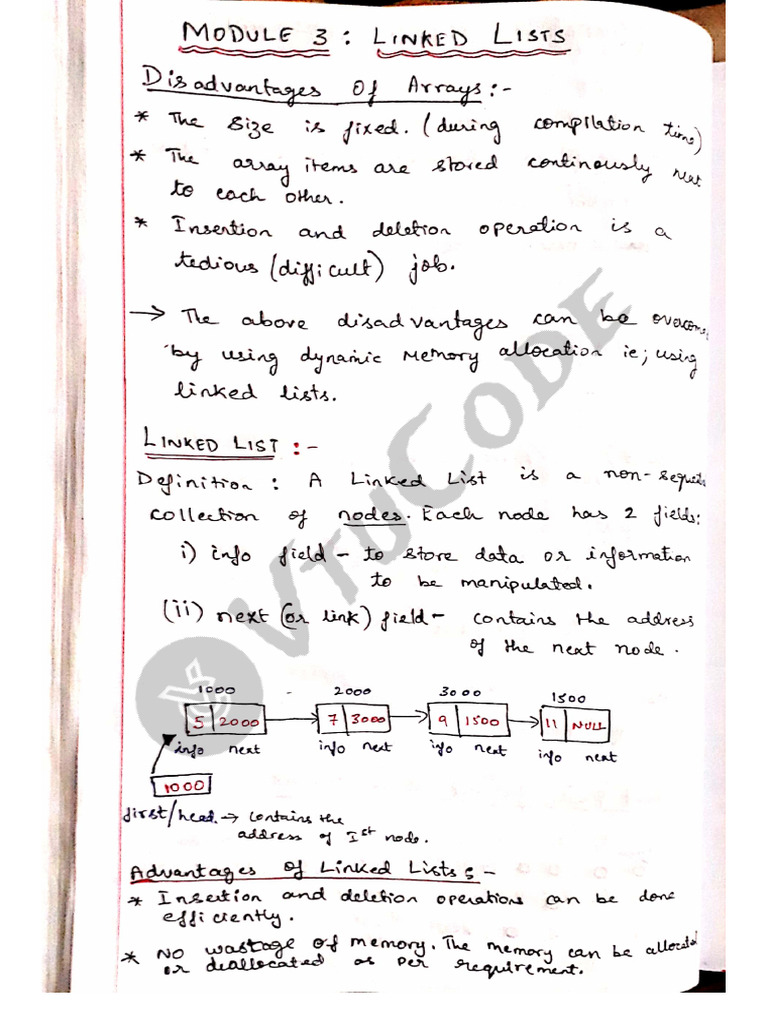 MODULE 3 : LINKED LISTS
Disadvantages Of Arrays:-
* The size is fixed. (during compilation time)
* The array items are stored continously next
to each other.
* Insertion and deletion operation is a
tedious (difficult) job.
→ The above disadvantages can be overcome
by using dynamic Memory allocation ie; using
linked lists.
LINKED LIST :-
Definition : A Linked List is a non-sequen
collection of nodes. Each node has 2 fields:
i) info field - to store data or information
to be manipulated.
(ii) next (or link) field - contains the address
of the next node.
1000 2000 3000 1500
5 2000 7 3000 9 1500 11 NULL
info next info next info next info next
1000
first/head → contains the
address of Ist node.
Advantages of Linked Lists :-
* Insertion and deletion operations can be done
efficiently.
* No wastage of memory. The memory can be allocated
or deallocated as per requirement.
VTUCODE